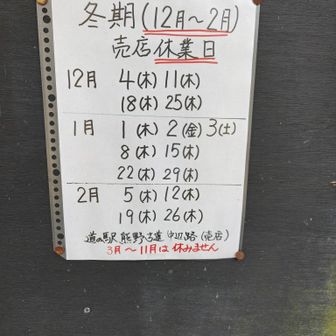 冬期(12月～2月)
売店休業日
12月 4(木) 11(木)
18(木) 25(木)
1月 1(木) 2(金) 3(土)
8(木) 15(木)
22(木) 29(木)
2月 5(木) 12(木)
19(木) 26(木)
道の駅熊野古道中辺路(売店)
3月～11月は休みません